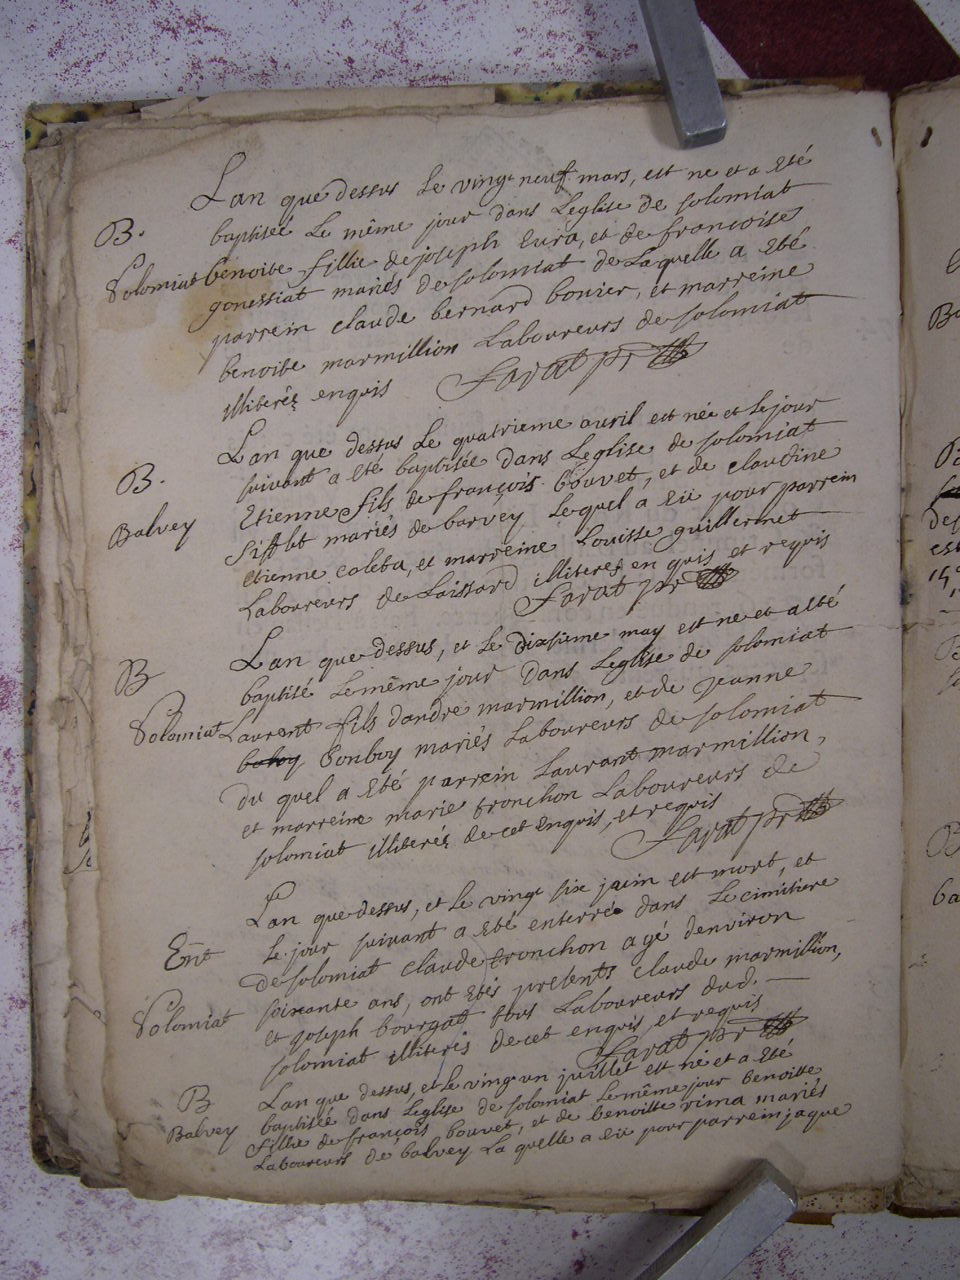 Lan que dessus le vingt neuf mars, est ne et a eté
B. baptisée le même jour dans Leglise de solomiat
Solomiat benoite fillie de joseph Eura, et de francoise
gonessiat mariés de solomiat de Laquelle a eté
parrein claude bernard bonier, et marreine
benoite marmillion Laboureurs de solomiat
illiterés enquis Savat ptr
Lan que dessus Le quatrieme avril est née et le jour
B. suivant a eté baptisée dans Leglise de solomiat
Etienne fils de françois bouvet, et de claudine
Balvey Sifflet mariés de barvey lequel a eü pour parrein
etienne coleta, et marreine Louisse guillermet
Laboureurs de Laissard illiteres en quis et requis
Savat ptr
Lan que dessus, et le dixsieme may est ne et a eté
B baptisé le même jour dans Leglise de solomiat
Solomiat Laurent fils dandré marmillion, et de jeanne
bonboy mariés Laboureurs de solomiat
du quel a eté parrein Laurant marmillion,
et marreine marie tronchon Laboureurs de
solomiat illiterés de cet enquis, et requis
Savat ptr
Lan que dessus, et le vingt six juin est mort, et
le jour suivant a eté enterré dans Le cimitiere
Ent de solomiat claude tronchon agé denviron
Solomiat soixante ans, ont etés presents claude marmillion,
et joseph bourgat tous Laboureurs dud.
solomiat illiterés de cet enquis et requis
Savat ptr
B Lan que dessus, et le vingt un juillet est né et a eté
baptisée dans Leglise de solomiat le même jour benoitte
Balvey fillie de françois bouvet, et de benoitte rima mariés
Laboureurs de balvey La quelle a eü pour parrein jaque